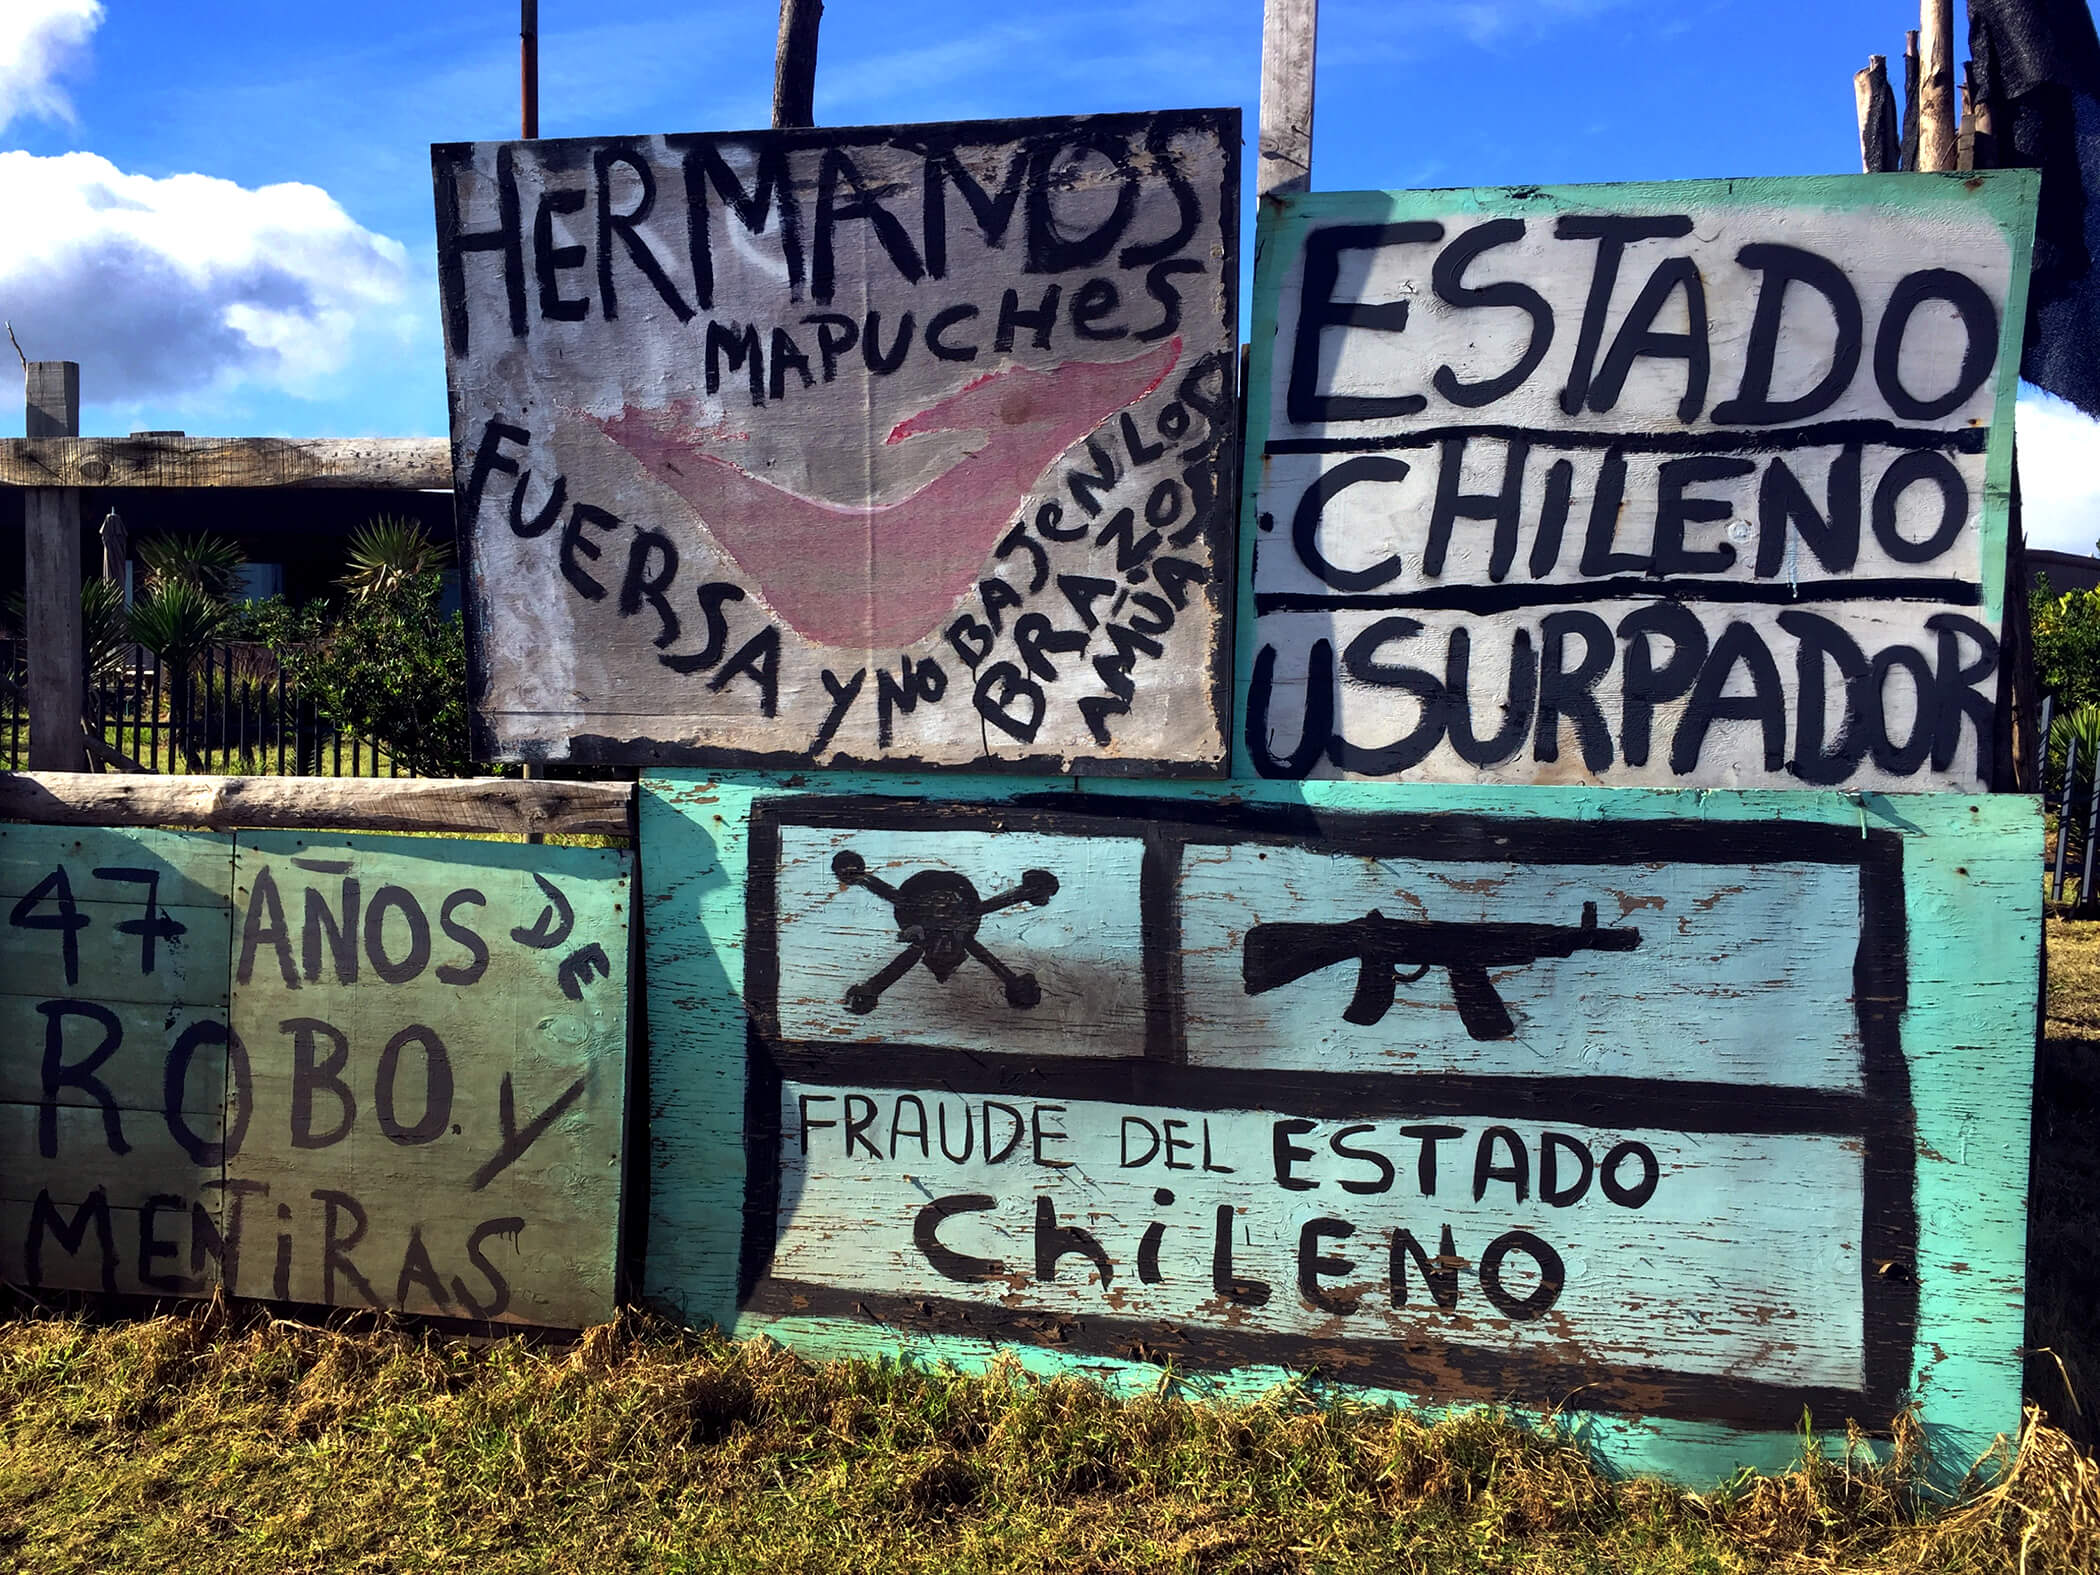 HERMANOS
MAPUCHES
FUERSA Y NO BAJEN LOS
BRAZOS
ESTADO
CHILENO
USURPADOR
47 AÑOS DE
ROBO. Y
MENTIRAS
FRAUDE DEL ESTADO
CHiLENO